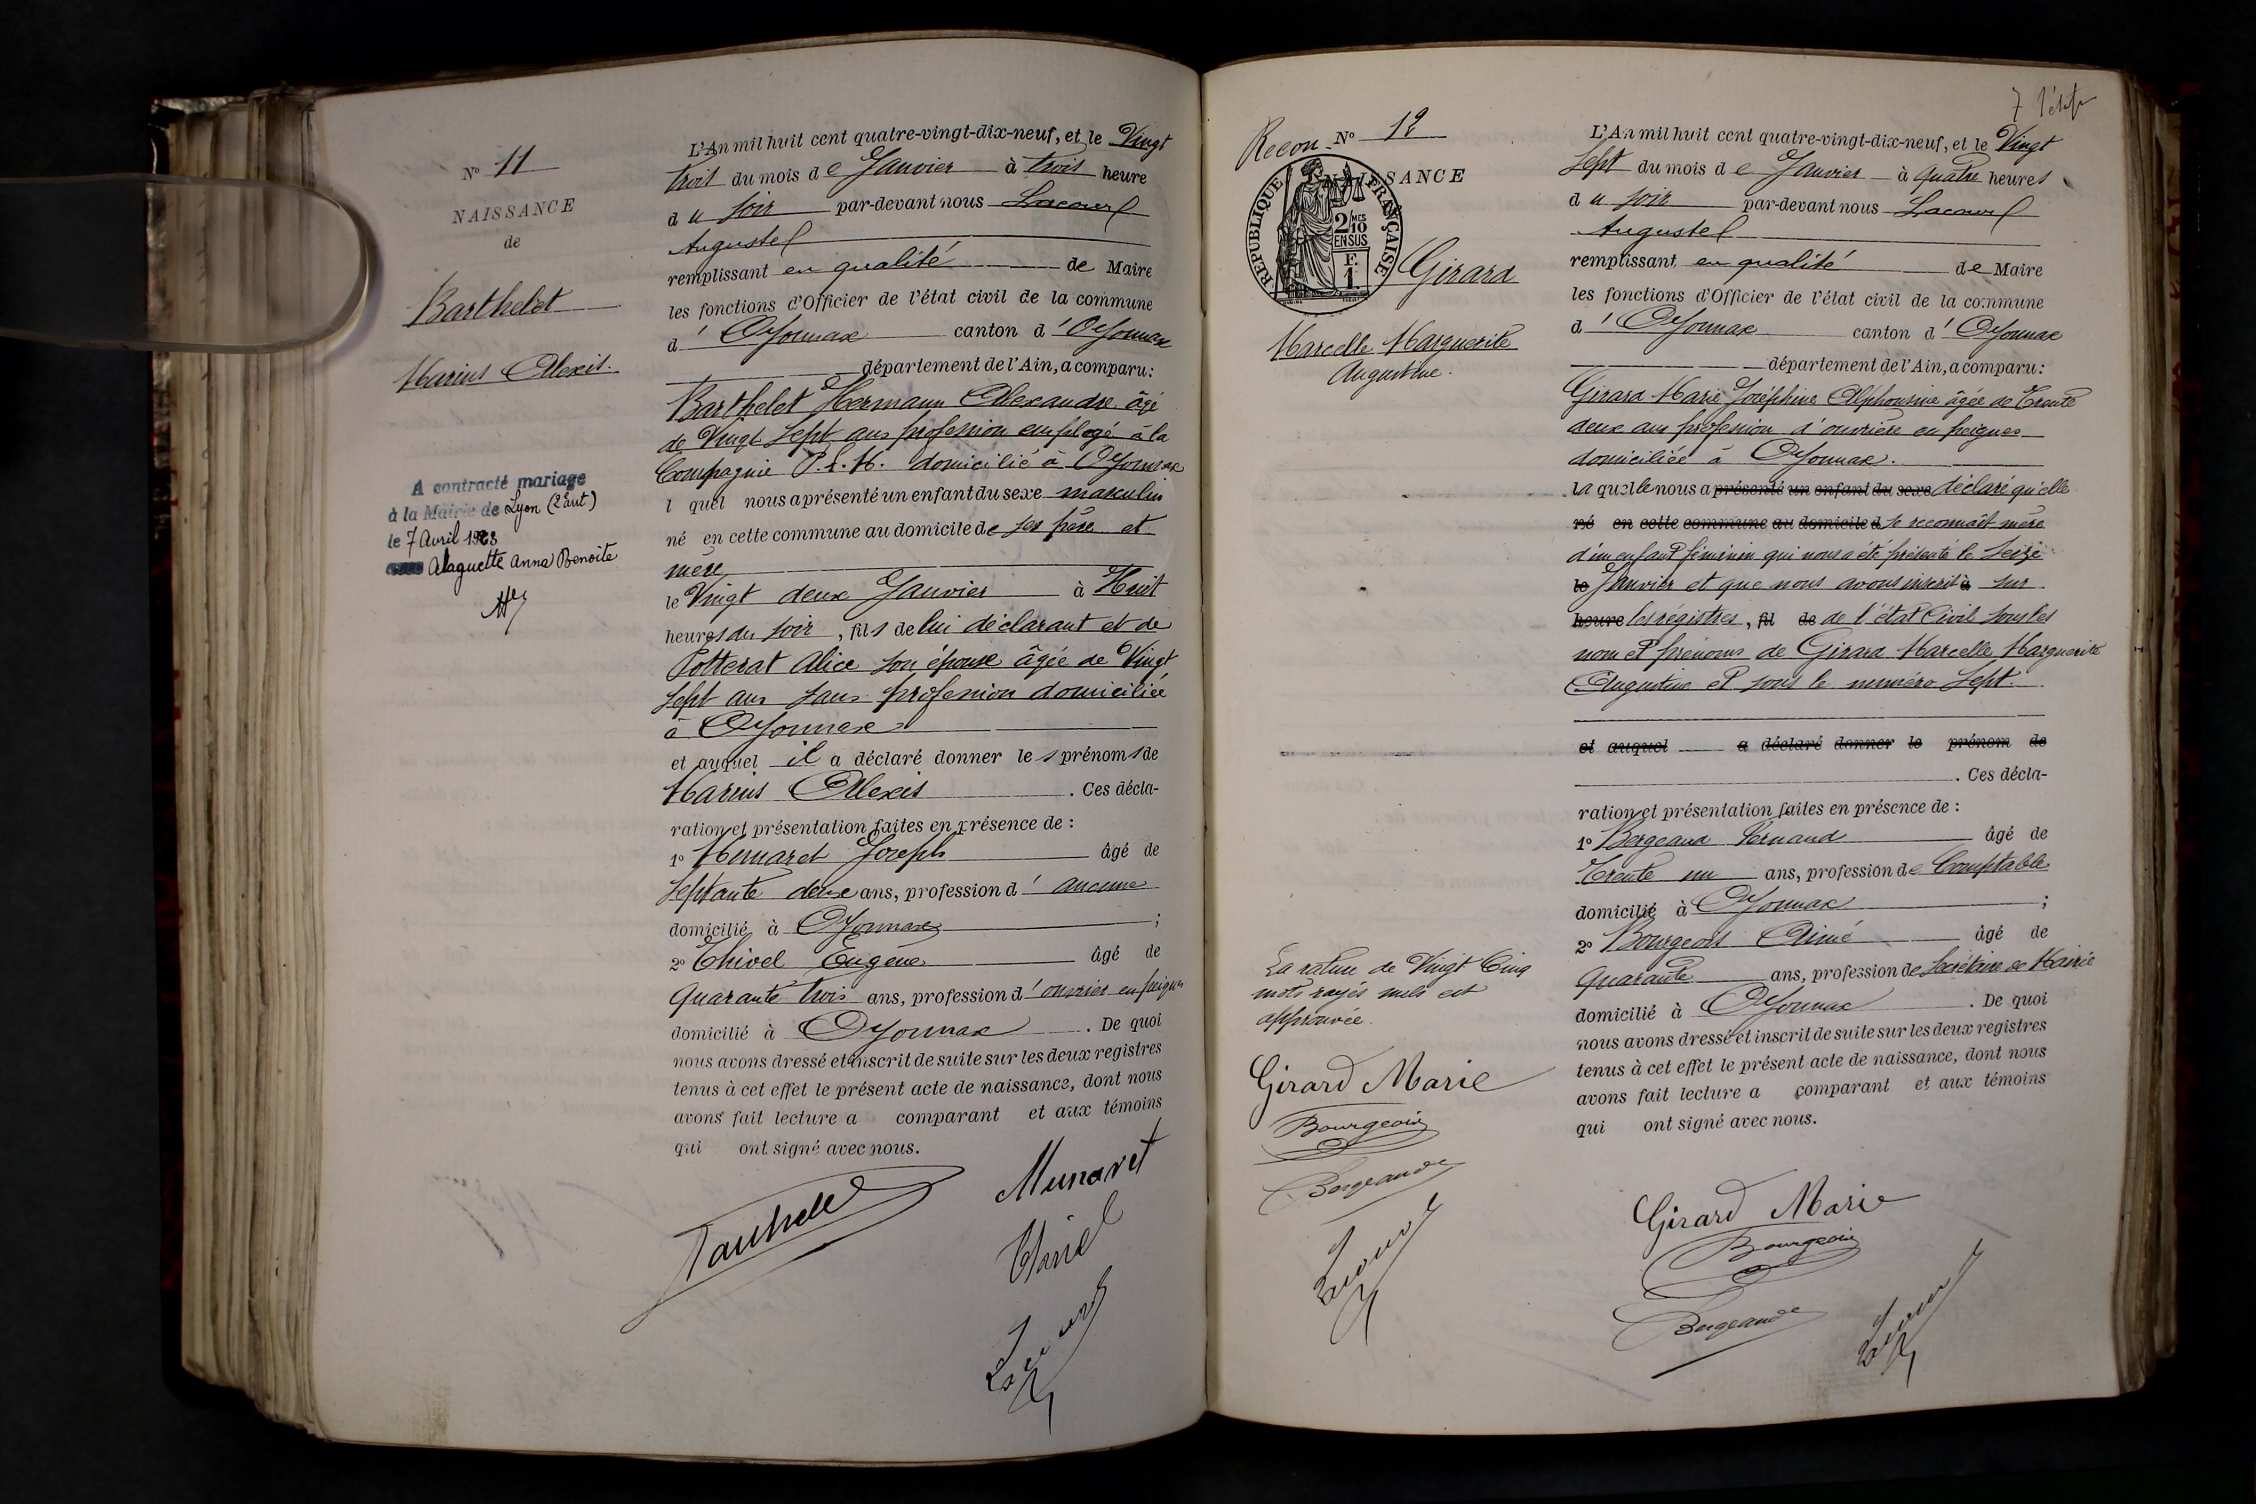 N° 11
NAISSANCE
de
Barthelet
Marius Alexis.
A contracté mariage
à la Mairie de Lyon (2e arrt)
le 7 Avril 1923
avec Alaguette Anna Benoite
L'An mil huit cent quatre-vingt-dix-neuf, et le Vingt
trois du mois de Janvier à trois heure
du soir par-devant nous Lacour
Auguste
remplissant en qualité de Maire
les fonctions d'Officier de l'état civil de la commune
d'Oyonnax canton d'Oyonnax
département de l'Ain, a comparu:
Barthelet Hermann Alexandre âgé
de Vingt sept ans profession employé à la
Compagnie P.L.M. domicilié à Oyonnax
l quel nous a présenté un enfant du sexe masculin
né en cette commune au domicile de ses père et
mère
le Vingt deux Janvier à Huit
heures du soir, fils de lui déclarant et de
Potterat Alice son épouse âgée de Vingt
sept ans sans profession domiciliée
à Oyonnax
et auquel il a déclaré donner les prénoms de
Marius Alexis. Ces décla-
ration et présentation faites en présence de :
1° Munaret Joseph âgé de
septante deux ans, profession d'aucune
domicilié à Oyonnax ;
2° Thivel Eugène âgé de
quarante trois ans, profession d'ouvrier en peignes
domicilié à Oyonnax. De quoi
nous avons dressé et inscrit de suite sur les deux registres
tenus à cet effet le présent acte de naissance, dont nous
avons fait lecture a comparant et aux témoins
qui ont signé avec nous.
Munaret
Thivel
Lacour
7
Recon. N° 12
NAISSANCE
RÉPUBLIQUE FRANÇAISE
2 MES
10
EN SUS
F.
1.
Girard
Marcelle Marguerite
Augustine.
L'An mil huit cent quatre-vingt-dix-neuf, et le Vingt
sept du mois de Janvier à quatre heures
du soir par-devant nous Lacour
Auguste
remplissant en qualité de Maire
les fonctions d'Officier de l'état civil de la commune
d'Oyonnax canton d'Oyonnax
département de l'Ain, a comparu:
Girard Marie Joséphine Alphonsine âgée de Trente
deux ans profession d'ouvrière en peignes
domiciliée à Oyonnax.
la quelle nous a présenté un enfant du sexe déclaré qu'elle
né en cette commune au domicile d se reconnaît mère
d'un enfant féminin qui nous a été présenté le seize
le Janvier et que nous avons inscrit à sur
heure les régistres, fil de de l'état Civil sous les
nom et prénoms de Girard Marcelle Marguerite
Augustine et sous le numéro sept.
et auquel a déclaré donner le prénom de
. Ces décla-
ration et présentation faites en présence de :
1° Bergeaud Fernand âgé de
Trente un ans, profession de Comptable
domicilié à Oyonnax ;
2° Bourgeois Aimé âgé de
quarante ans, profession de Secrétaire de Mairie
domicilié à Oyonnax. De quoi
nous avons dressé et inscrit de suite sur les deux registres
tenus à cet effet le présent acte de naissance, dont nous
avons fait lecture a comparant et aux témoins
qui ont signé avec nous.
La rature de Vingt Cinq
mots rayés nuls est
approuvée.
Girard Marie
Bourgeois
Bergeaud
Lacour
Girard Marie
Bourgeois
Bergeaud
Lacour